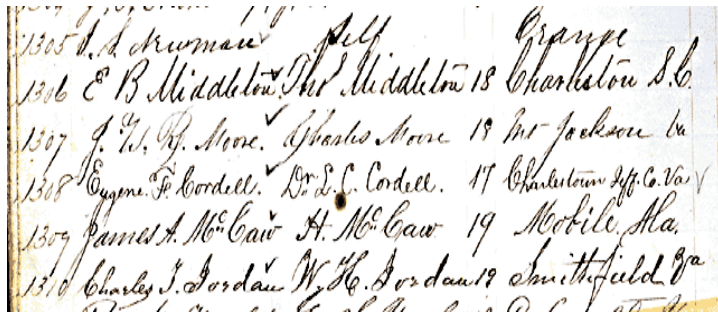 1305 S. S. Newman Self Orange
1306 E B Middleton Thos Middleton 18 Charleston S.C.
1307 J. W. Moore. Charles Moore 18 Mt Jackson Va
1308 Eugene F. Cordell. Dr. L. C. Cordell. 17 Charlestown Jeff. Co. Va
1309 James A. McCaw H. McCaw 19 Mobile. Ala.
1310 Charles T. Jordan W. H. Jordan 19 Smithfield Va